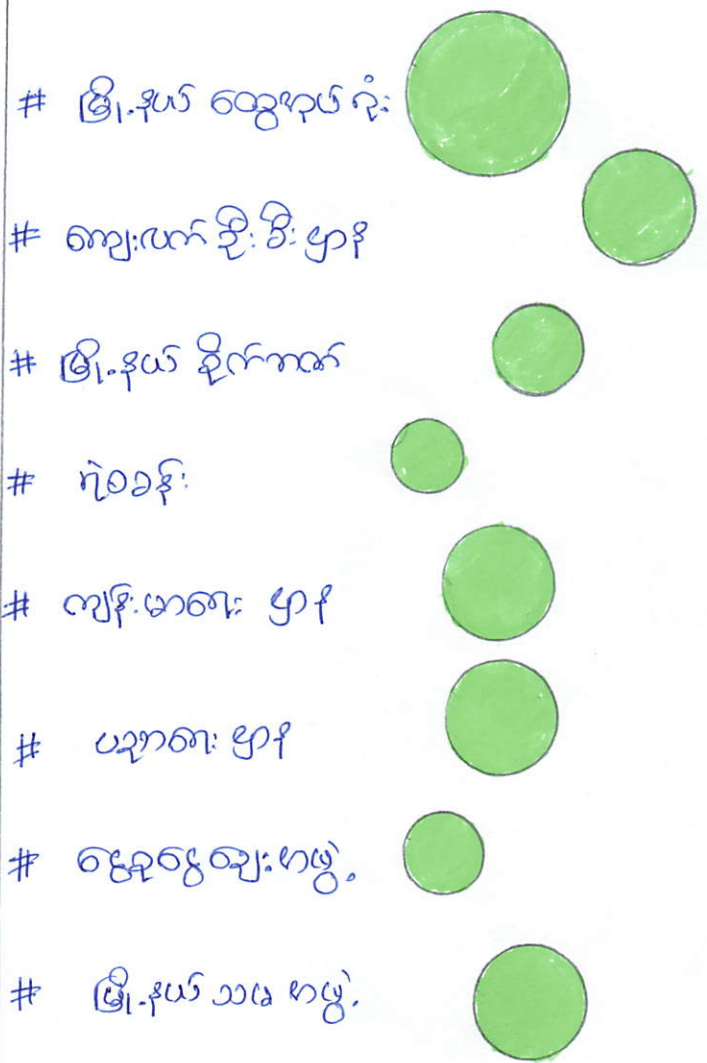 # မြို့နယ် ထွေအုပ် ရုံး
# ကျေးလက် ဦးစီး ဌာန
# မြို့နယ် စိုက်ဘဏ်
# ရဲစခန်း
# ကျန်းမာရေး ဌာန
# ပညာရေး ဌာန
# ငွေစုငွေချေးအဖွဲ့
# မြို့နယ် သမ အဖွဲ့